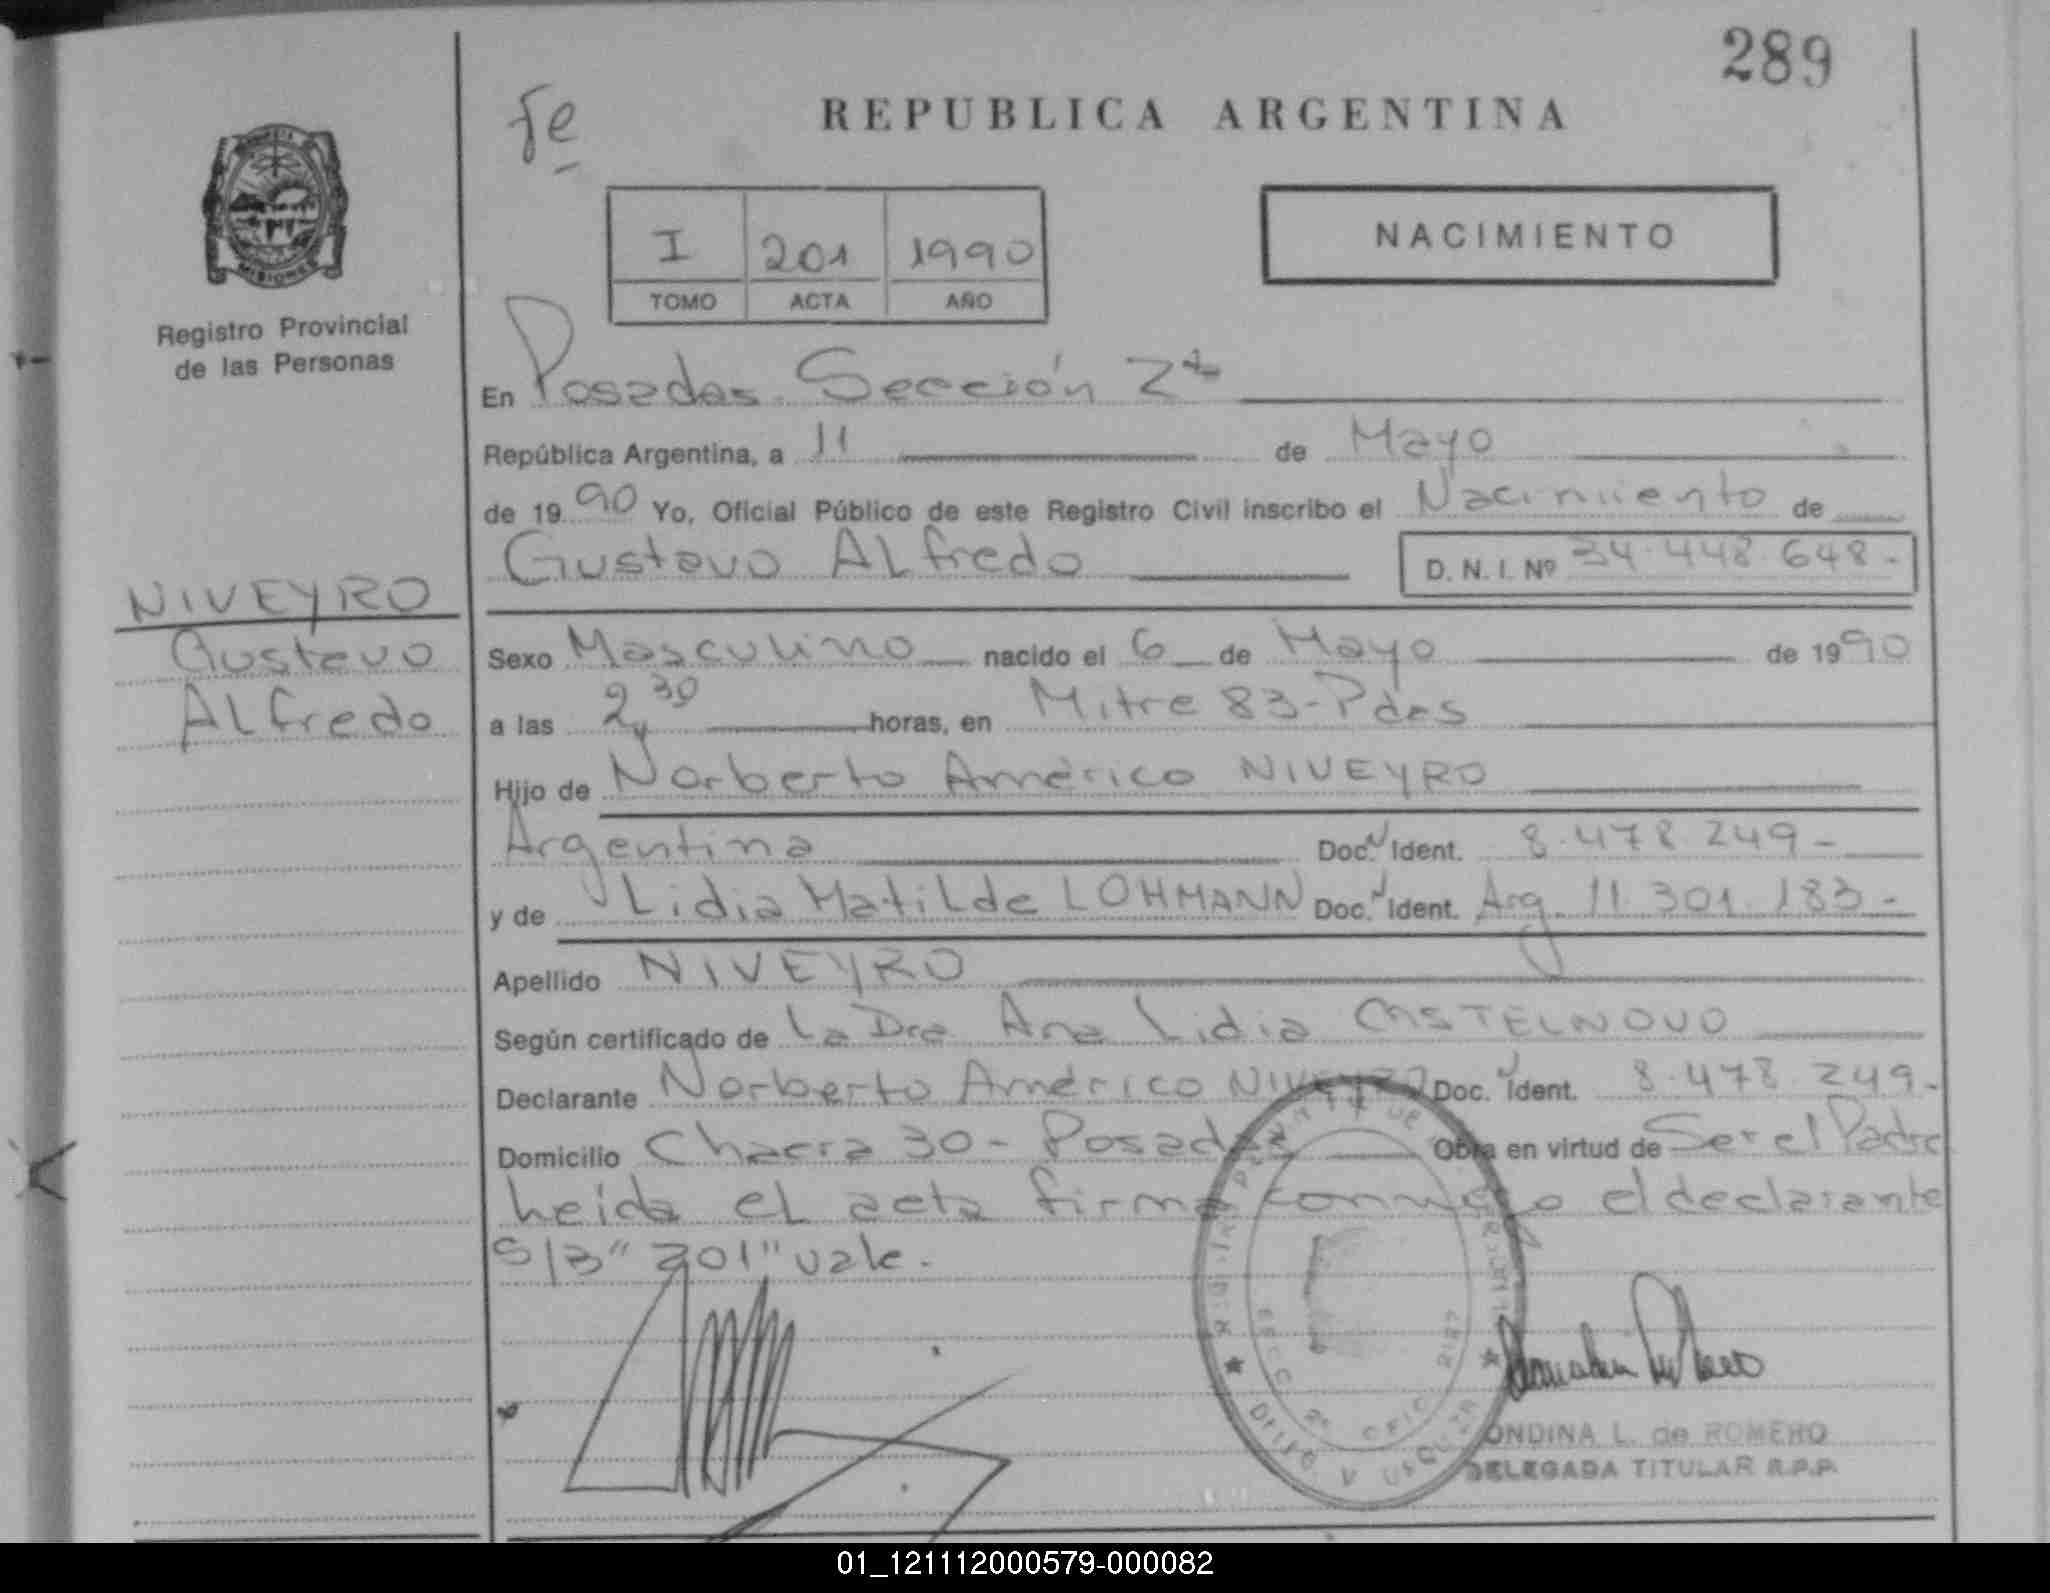 289
fe
REPUBLICA ARGENTINA
I 201 1990
TOMO ACTA AÑO
NACIMIENTO
MISIONES
Registro Provincial
de las Personas
NIVEYRO
Gustavo
ALfredo
En Posadas Sección 2ª
República Argentina, a 11 de Mayo
de 1990 Yo, Oficial Público de este Registro Civil inscribo el Nacimiento de
Gustavo ALfredo D. N. I. Nº 34.448.648-
Sexo Masculino nacido el 6 de Mayo de 1990
a las 2,30 horas, en Mitre 83-Pdas
Hijo de Norberto Américo NIVEYRO
Argentina Doc. Ident. 8.478.249-
y de Lidia Matilde LOHMANN Doc. Ident. Arg. 11.301.183-
Apellido NIVEYRO
Según certificado de La Dra Ana Lidia CASTELNOVO
Declarante Norberto Américo NIVEYRO Doc. Ident. 8.478.249-
Domicilio Chacra 30- Posadas Obra en virtud de Ser el Padre
Leida el acta firma conmigo el declarante
S/B "201" vale.
ONDINA L. de ROMERO
DELEGADA TITULAR R.P.P.
01_121112000579-000082